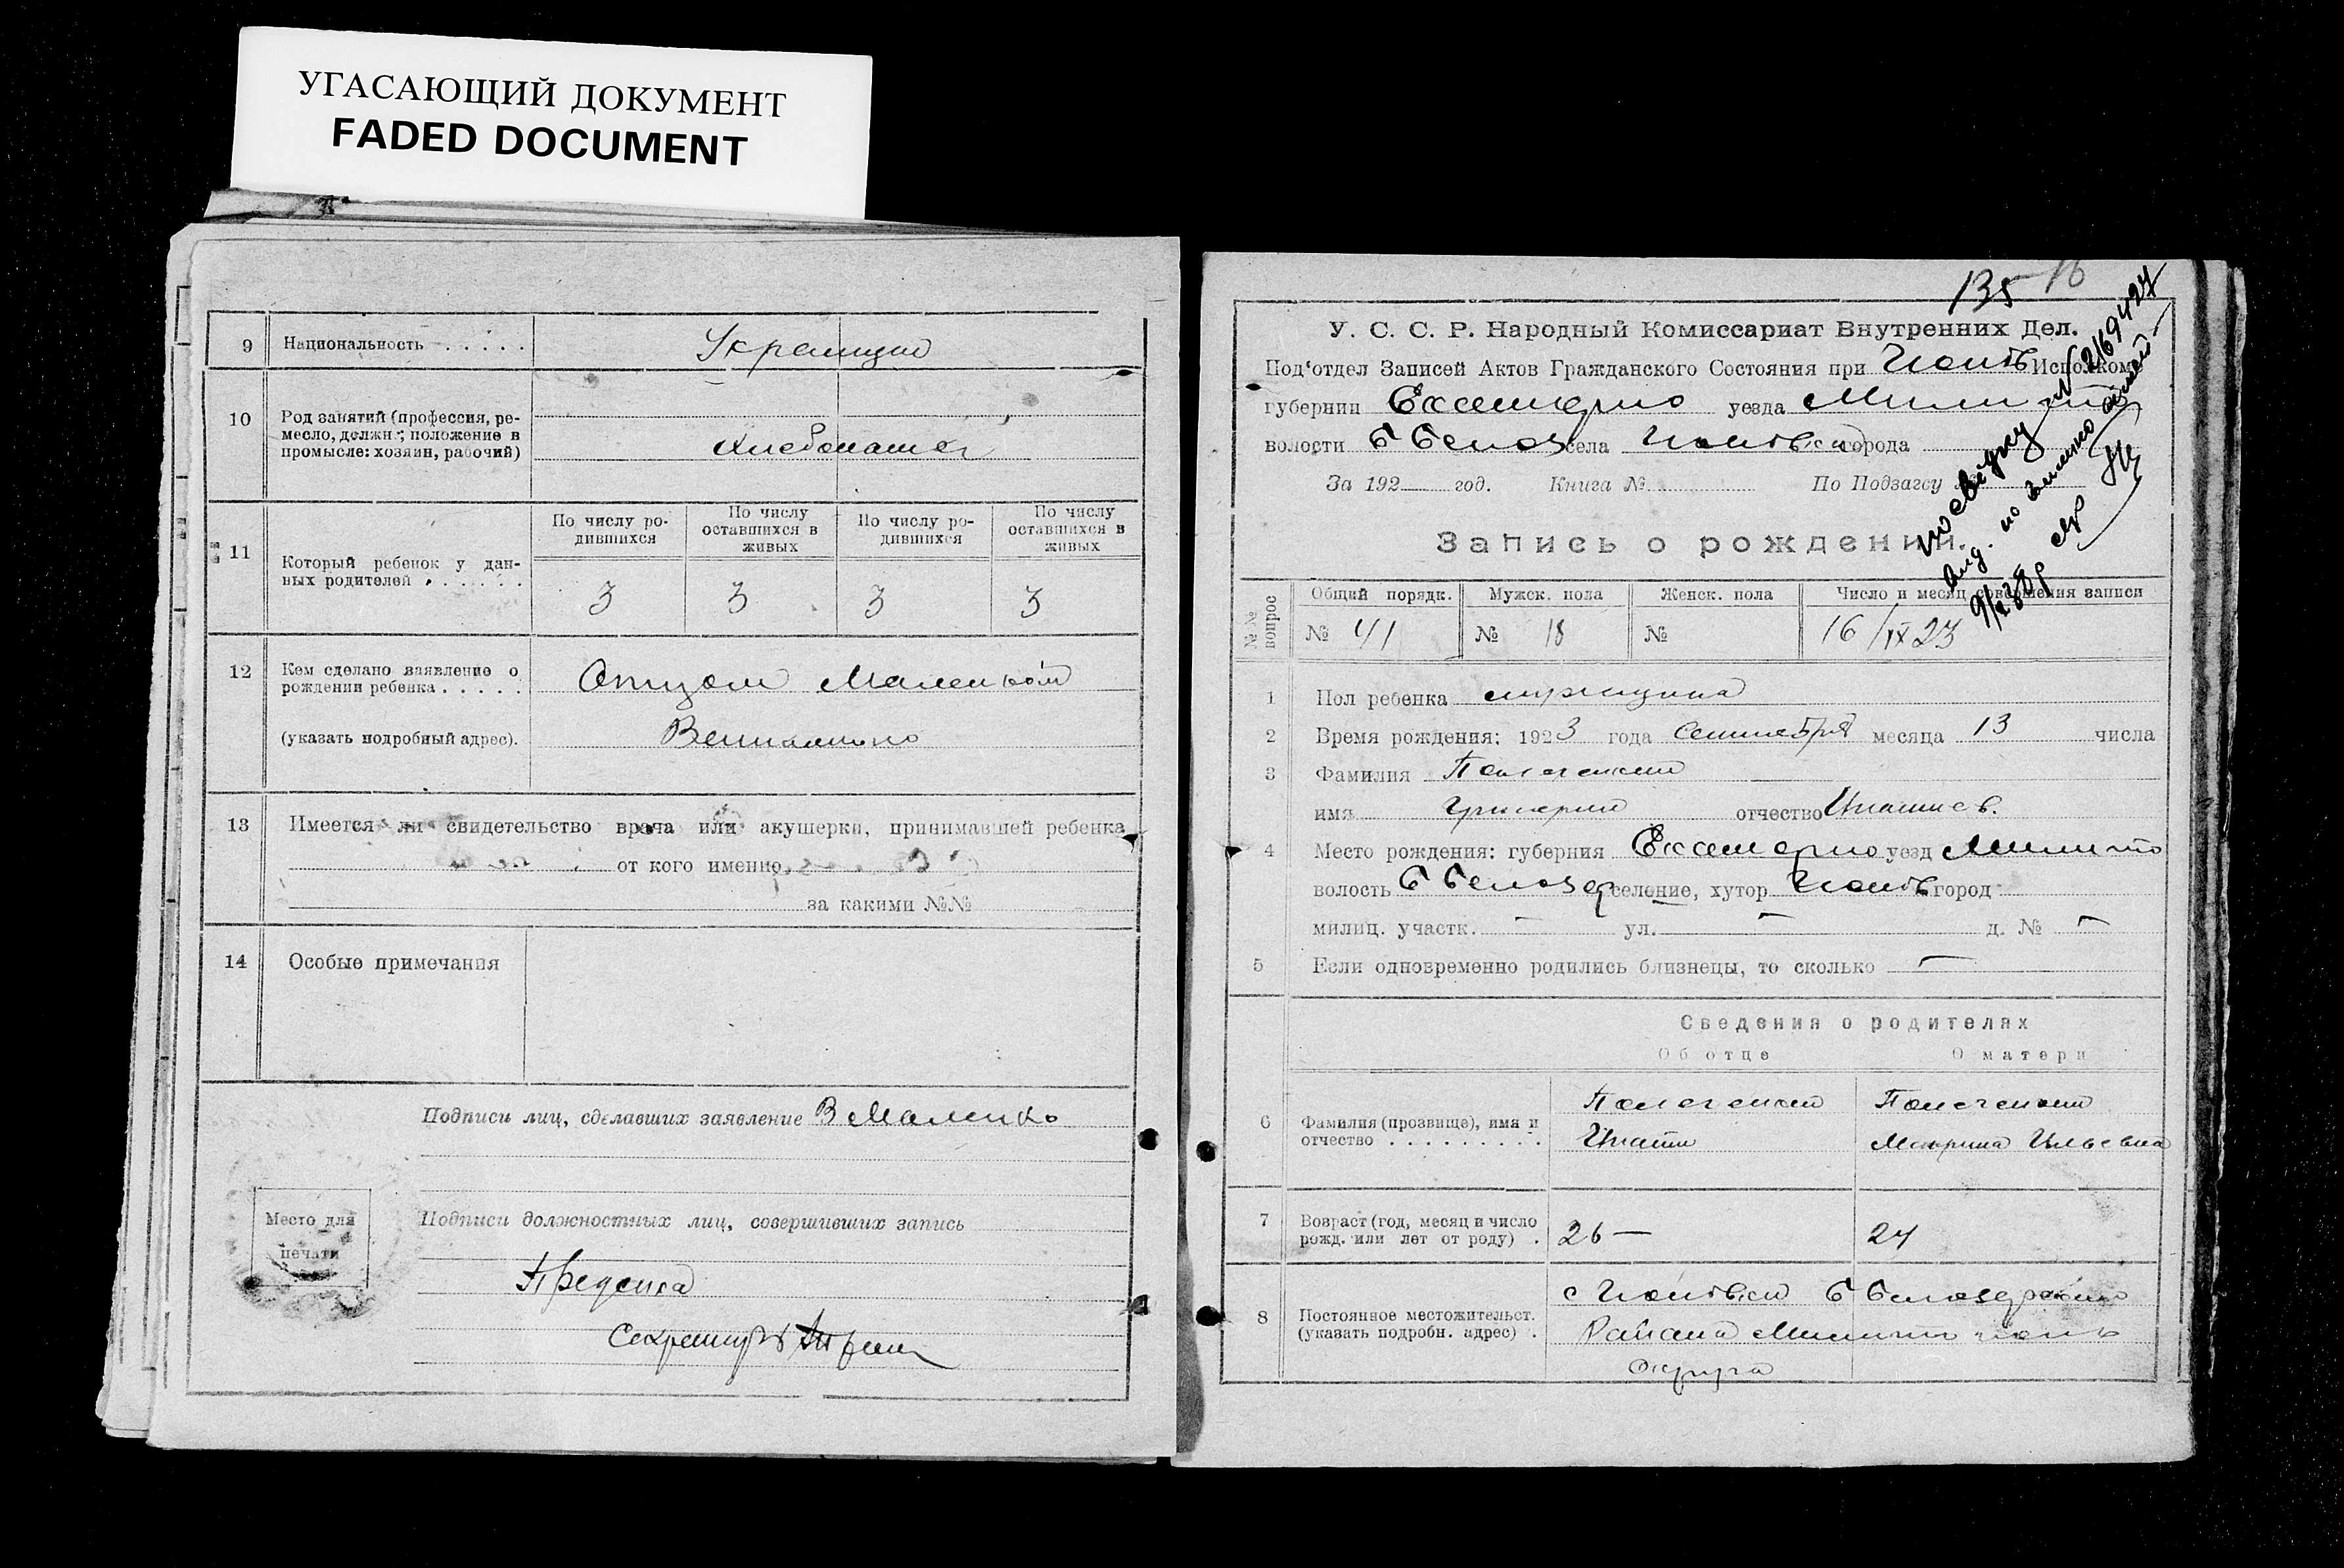 УГАСАЮЩИЙ ДОКУМЕНТ
FADED DOCUMENT
9 Национальность . . . . . Украинцы
10 Род занятий (профессия, ре-
месло, должн.; положение в
промысле: хозяин, рабочий)
Хлебопашец
11 Который ребенок у дан-
ных родителей . . . . . .
По числу ро-
дившихся
По числу
оставшихся в
живых
По числу ро-
дившихся
По числу
оставшихся в
живых
3 3 3 3
12 Кем сделано заявление о
рождении ребенка . . . . .
Отцом
(указать подробный адрес).
13 Имеется ли свидетельство врача или акушерки, принимавшей ребенка
от кого именно
за какими №№
14 Особые примечания
Подписи лиц, сделавших заявление В Маленко
Место для
печати
Подписи должностных лиц, совершивших запись
Секретарь
135
16
У. С. С. Р. Народный Комиссариат Внутренних Дел.
Под'отдел Записей Актов Гражданского Состояния при Исполкоме
губернии Екатерино уезда Мелито
волости Б Белоз села города
За 192 год. Книга № По Подзагсу
№ 2169424
Запись о рождении.
№№ вопрос
Общий порядк. Мужск. пола Женск. пола Число и месяц совершения записи
№ 41 № 18 № 16/IX 23
1 Пол ребенка мужчина
2 Время рождения: 1923 года Сентября месяца 13 числа
3 Фамилия
имя Григорий отчество Игнатиев.
4 Место рождения: губерния Екатерино уезд Мелито
волость Б Белозер селение, хутор город
милиц. участк. – ул. – д. № –
5 Если одновременно родились близнецы, то сколько –
Сведения о родителях
Об отце О матери
6 Фамилия (прозвище), имя и
отчество . . . . . . . . .
Игнатий
Маврина Ильевна
7 Возраст (год, месяц и число
рожд. или лет от роду) .
26 — 24
8 Постоянное местожительст.
(указать подробн. адрес) .
Б Белозерского
Района Мелитополь
округа